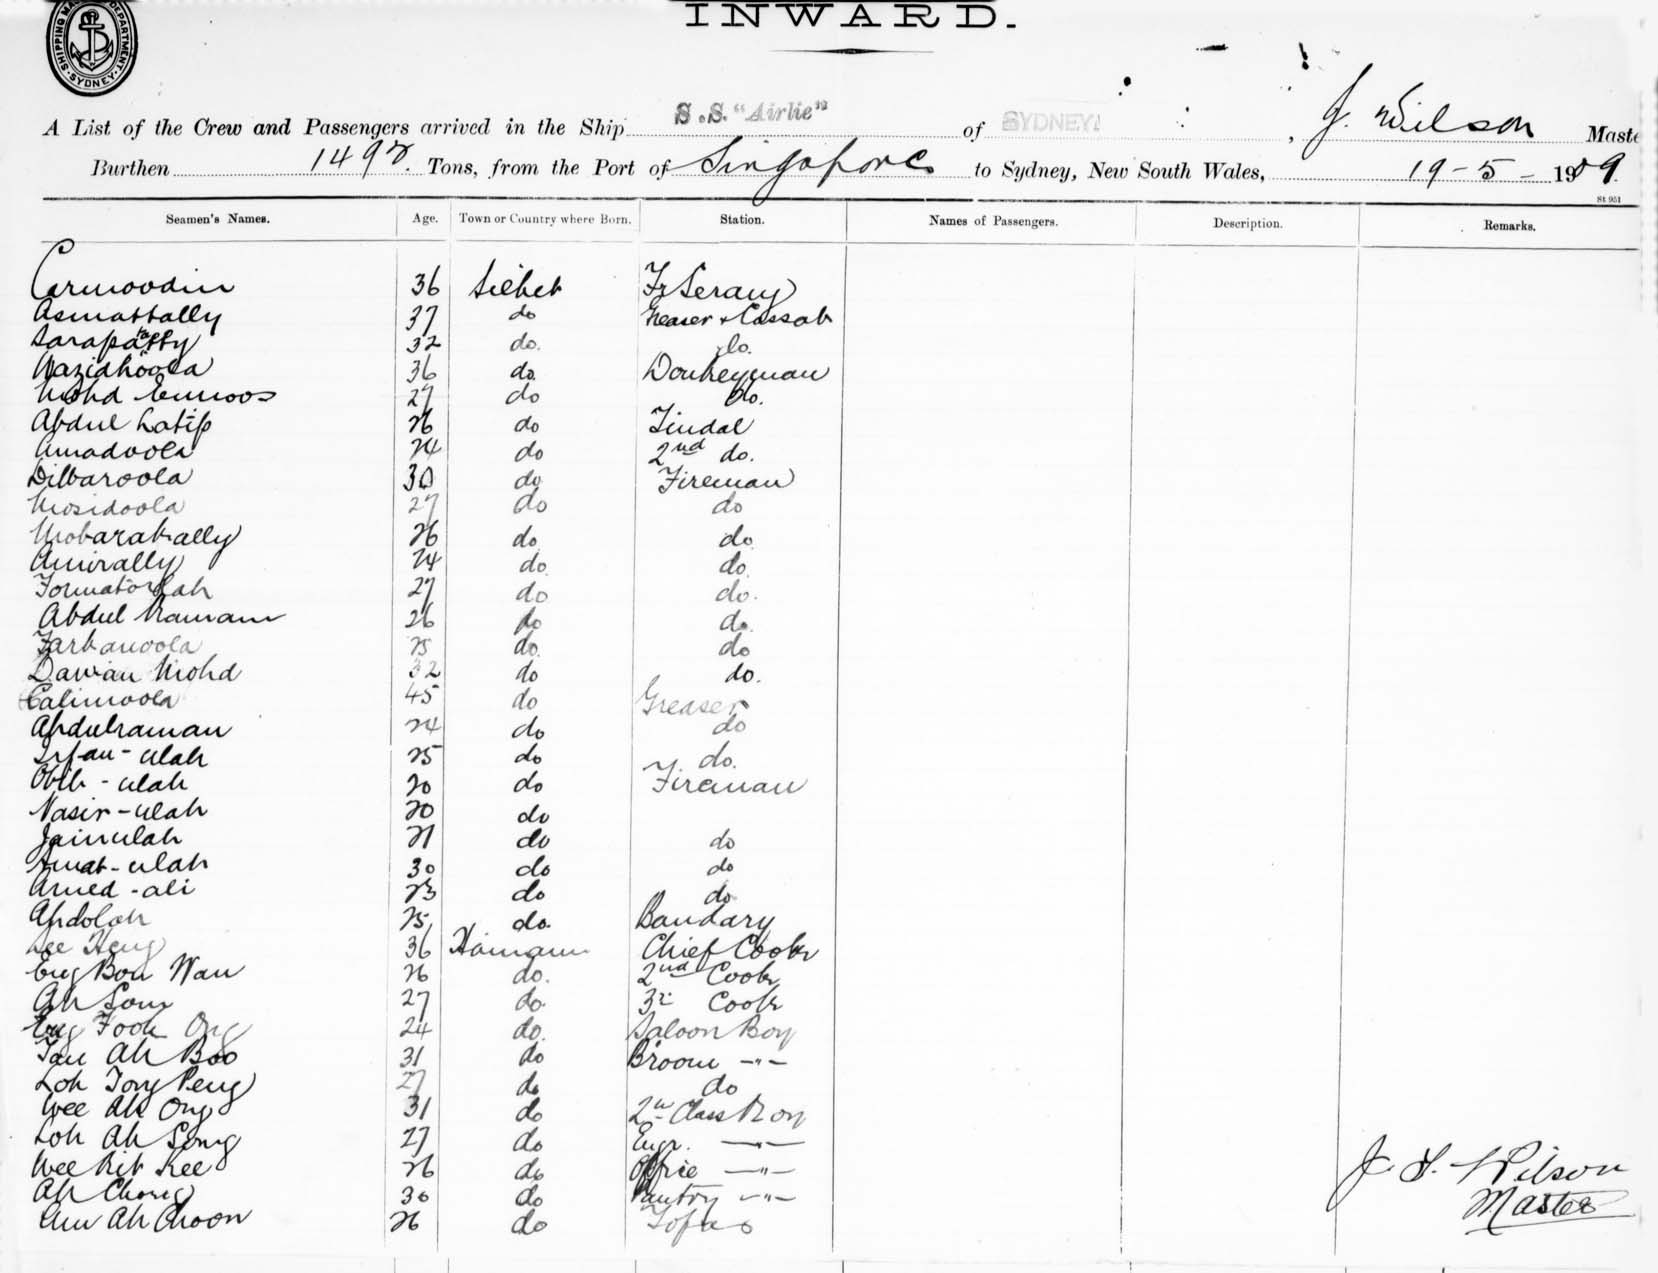 INWARD.
SHIPPING MA DEPARTMENT. SYDNEY.
A List of the Crew and Passengers arrived in the Ship S.S. "Airlie" of SYDNEY. , J. Wilson Maste
Burthen 1492. Tons, from the Port of Singapore to Sydney, New South Wales, 19-5- 1909.
St 951
Seamen's Names. Age. Town or Country where Born. Station. Names of Passengers. Description. Remarks.
Carmoodin 36 Silhet Fr Serang
Asmattally 37 do Greaser & Cassab
32 do. do.
Wazidhoola 36 do. Donkeyman
Mohd 27 do do.
Abdul Latip 26 do Tindal
Amadoola 24 do 2nd do.
Dilbaroola 30 do Fireman
Mosidoola 27 do do
Mobarakally 26 do do.
Amirally 24 do. do.
27 do do.
Abdul Ramam 26 do do.
Farbanoola 25 do. do
Dawan Mohd 32 do do.
Calimoola 45 do Greaser
Abdulraman 24 do do
Irfan-ulah 25 do do.
Obib-ulah 20 do Fireman
Nasir-ulah 20 do
Jainulah 21 do do
Amat-ulah 30 do do
Amed-ali 23 do do
Abdolah 25 do. Bandary
Lee Heng 36 Hainam Chief Cook
Eng Bon Wan 26 do. 2nd Cook
Ah Som 27 do. 3rd Cook
Eng Fook Ong 24 do. Saloon Boy
Tan Ah Boo 31 do B'room -"-
Loh Tong Peng 27 do do
Wee Ah Ong 31 do 2nd Class Boy
Loh Ah Song 27 do Engr. -"-
Wee Kit Kee 26 do Office -"-
Ah Chong 30 do Pantry -"-
Ah Choon 26 do Topas
J. H. Wilson
Master